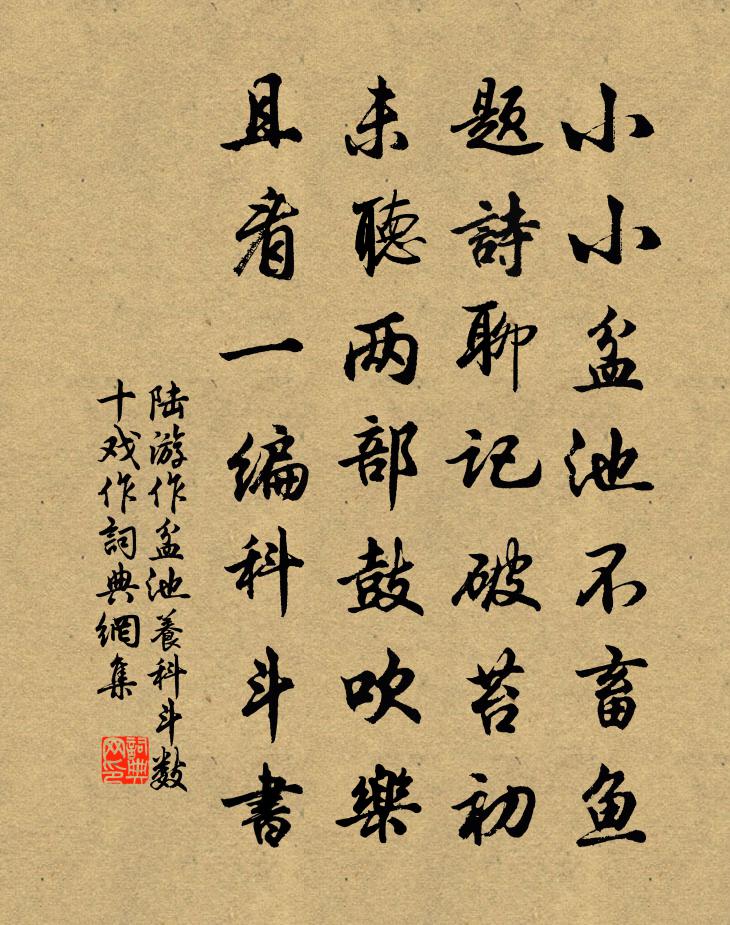 小小盆池不畜鱼
题詩聊记破苔初
未聽两部鼓吹樂
且看一编科斗書
陆游作盆池養科斗数
十戏作詞典網集
詞典
网印